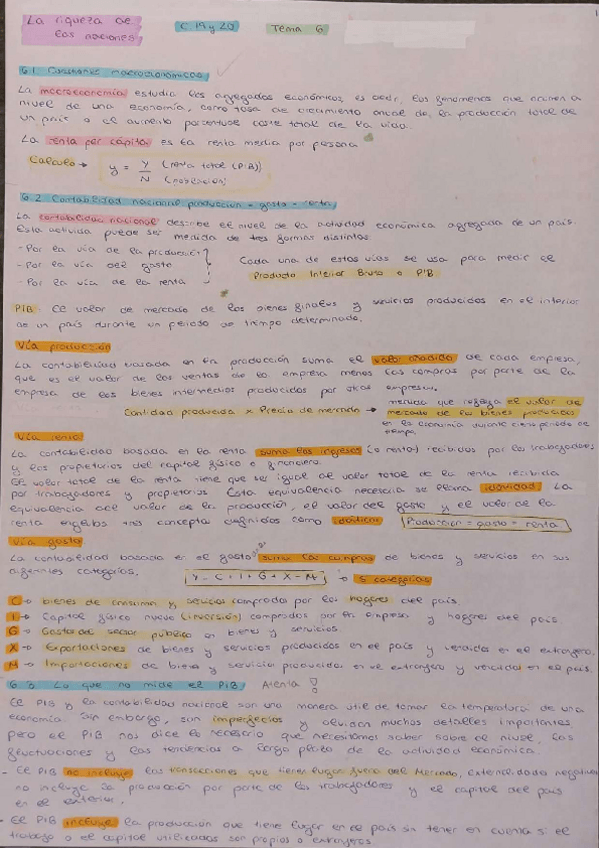 La riqueza de las naciones
C. 19 y 20
Tema 6
1
6.1 Cuestiones macroeconómicas
La macroeconomía estudia los agregados económicos, es decir, los fenómenos que ocurren a
nivel de una economía, como tasa de crecimiento anual de la producción total de
un país o el aumento porcentual coste total de la vida.
La renta per cápita es la renta media por persona
Cálculo → y = Y/N (renta total (PIB)) (población)
6.2 Contabilidad nacional producción = gasto = renta
La contabilidad nacional describe el nivel de la actividad económica agregada de un país.
Esta actividad puede ser medida de tres formas distintas:
- Por la vía de la producción
- Por la vía del gasto
- Por la vía de la renta
Cada una de estas vías se usa para medir el
Producto Interior Bruto o PIB
PIB: El valor de mercado de los bienes finales y servicios producidos en el interior
de un país durante un periodo de tiempo determinado.
Vía producción
La contabilidad basada en la producción suma el valor añadido de cada empresa,
que es el valor de las ventas de la empresa menos las compras por parte de la
empresa de los bienes intermedios producidos por otras empresas.
Cantidad producida x Precio de mercado →
medida que refleja el valor de
mercado de los bienes producidos
en la economía durante cierto periodo de
tiempo
Vía renta
La contabilidad basada en la renta suma los ingresos (o renta) recibidos por los trabajadores
y los propietarios del capital físico o financiero.
El valor total de la renta tiene que ser igual al valor total de la renta recibida
por trabajadores y propietarios. Esta equivalencia necesaria se llama identidad. La
equivalencia del valor de la producción, el valor del gasto y el valor de la
renta engloba tres conceptos definidos como idénticos
Producción = gasto = renta
Vía gasto
La contabilidad basada en el gasto suma las compras de bienes y servicios en sus
diferentes categorías.
Y = C + I + G + X - M → 5 categorías
C → bienes de consumo y servicios comprados por los hogares del país.
I → Capital físico nuevo (inversión) comprados por empresas y hogares del país.
G → Gasto del sector público en bienes y servicios.
X → Exportaciones de bienes y servicios producidos en el país y vendidos en el extranjero.
M → Importaciones de bienes y servicios producidos en el extranjero y vendidos en el país.
6.3 Lo que no mide el PIB
El PIB y la contabilidad nacional son una manera útil de tomar la temperatura de una
economía. Sin embargo, son imperfectos y olvidan muchos detalles importantes
pero el PIB nos dice lo necesario que necesitamos saber sobre el nivel, las
fluctuaciones y las tendencias a largo plazo de la actividad económica.
- El PIB no incluye las transacciones que tienen lugar fuera del mercado,
no incluye la producción por parte de los trabajadores y el capital del país
en el exterior.
- El PIB incluye la producción que tiene lugar en el país sin tener en cuenta si el
trabajo o el capital utilizados son propios o extranjeros.